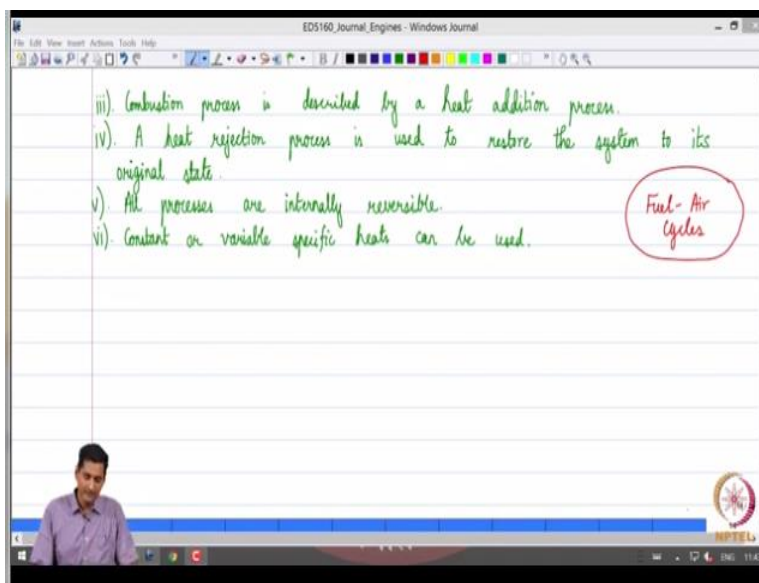 ED5160_Journal_Engines - Windows Journal
File Edit View Insert Actions Tools Help
B I
iii). Combustion process is described by a heat addition process.
iv). A heat rejection process is used to restore the system to its
original state.
v). All processes are internally reversible.
vi). Constant or variable specific heats can be used.
Fuel-Air
Cycles
NPTEL
ENG